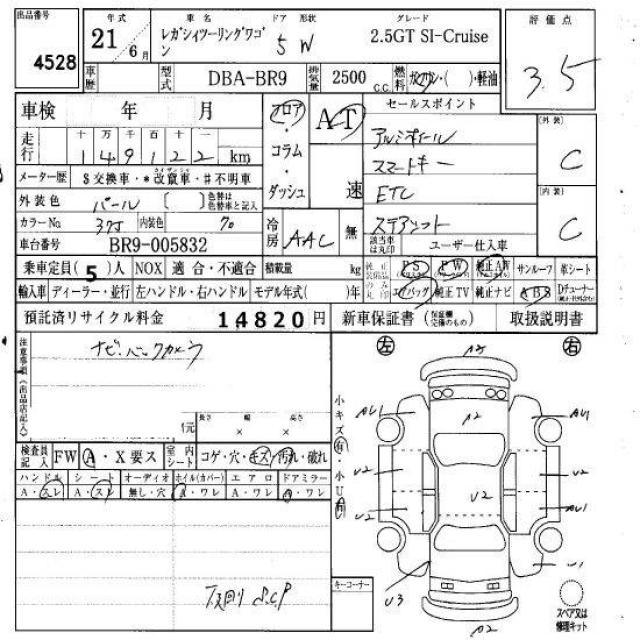 出品番号 4528
年式 21年 6月
車名 レガシィツーリングワゴン
ドア 形状 5 W
グレード 2.5GT SI-Cruise
評価点 3.5
車歴
型式 DBA-BR9
排気量 2500 C.C.
燃料 ガソリン・( )・軽油
車検 年 月
フロア・コラム・ダッシュ
AT 速
セールスポイント
アルミホイール
スマートキー
ETC
(外装) C
(内装) C
走行 十万千百十一
149122 km
メーター歴 $交換車・*改竄車・#不明車
外装色 パール ( ) 色替は色替車と記入
カラーNo 37J 内装色 70
冷房 AAC 無
該当車は丸印 ユーザー仕入車
車台番号 BR9-005832
乗車定員(5)人 NOX 適合・不適合 積載量 kg
純正 PS PW 純正AW サンルーフ 革シート
輸入車 ディーラー・並行 左ハンドル・右ハンドル モデル年式( )年
エアバッグ 純正TV 純正ナビ ABS Dチューナー
預託済リサイクル料金 14820円 新車保証書 取扱説明書
注意事項(出品店記入)
ナビ・バックカメラ
左 右
長さ 幅 高さ
× ×
小キズ有 小U有
検査員記入 FW A・X要ス 室内シート コゲ・穴・キズ・汚れ・破れ
ハンドル シート オーディオ ホイル(カバー) エアロ ドアミラー
A・スレ A・スレ 無し・穴 A・ワレ A・ワレ A・ワレ
下回りS.C.P
キーコーナー
A2
AU1 AU1
U2 U2
U2
U2 AU1
U3 U1
A2
スペア又は修理キット